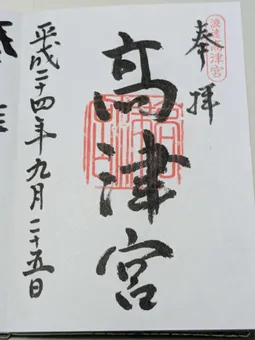 奉拝
浪速高津宮
高津宮
平成二十四年九月二十五日